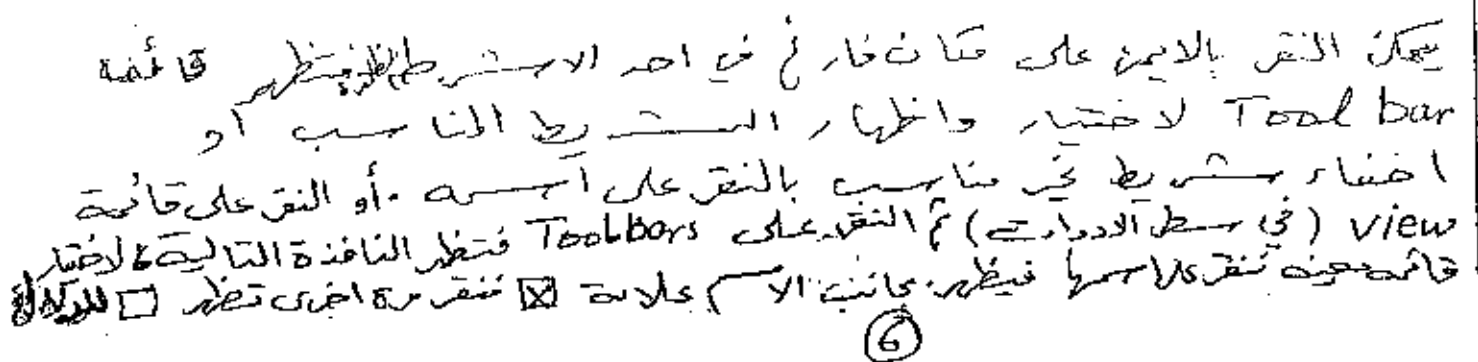 يمكن النقر بالايمن على مكان فارغ في احد الاشرطة فتظهر قائمة
Tool bar لاختيار واظهار الشريط المناسب او
اخفاء شريط غير مناسب بالنقر على أسمه . أو النقر على قائمة
view (في شريط الادوات) ثم النقر على Toolbars فتظهر النافذة التالية لاختيار
قائمة معينه ننقر على اسمها فيظهر بجانب الاسم علامة ☒ ننقر مرة اخرى تظهر ☐
6